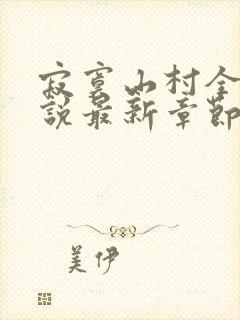 寂寞山村全
說最新章節
美伊